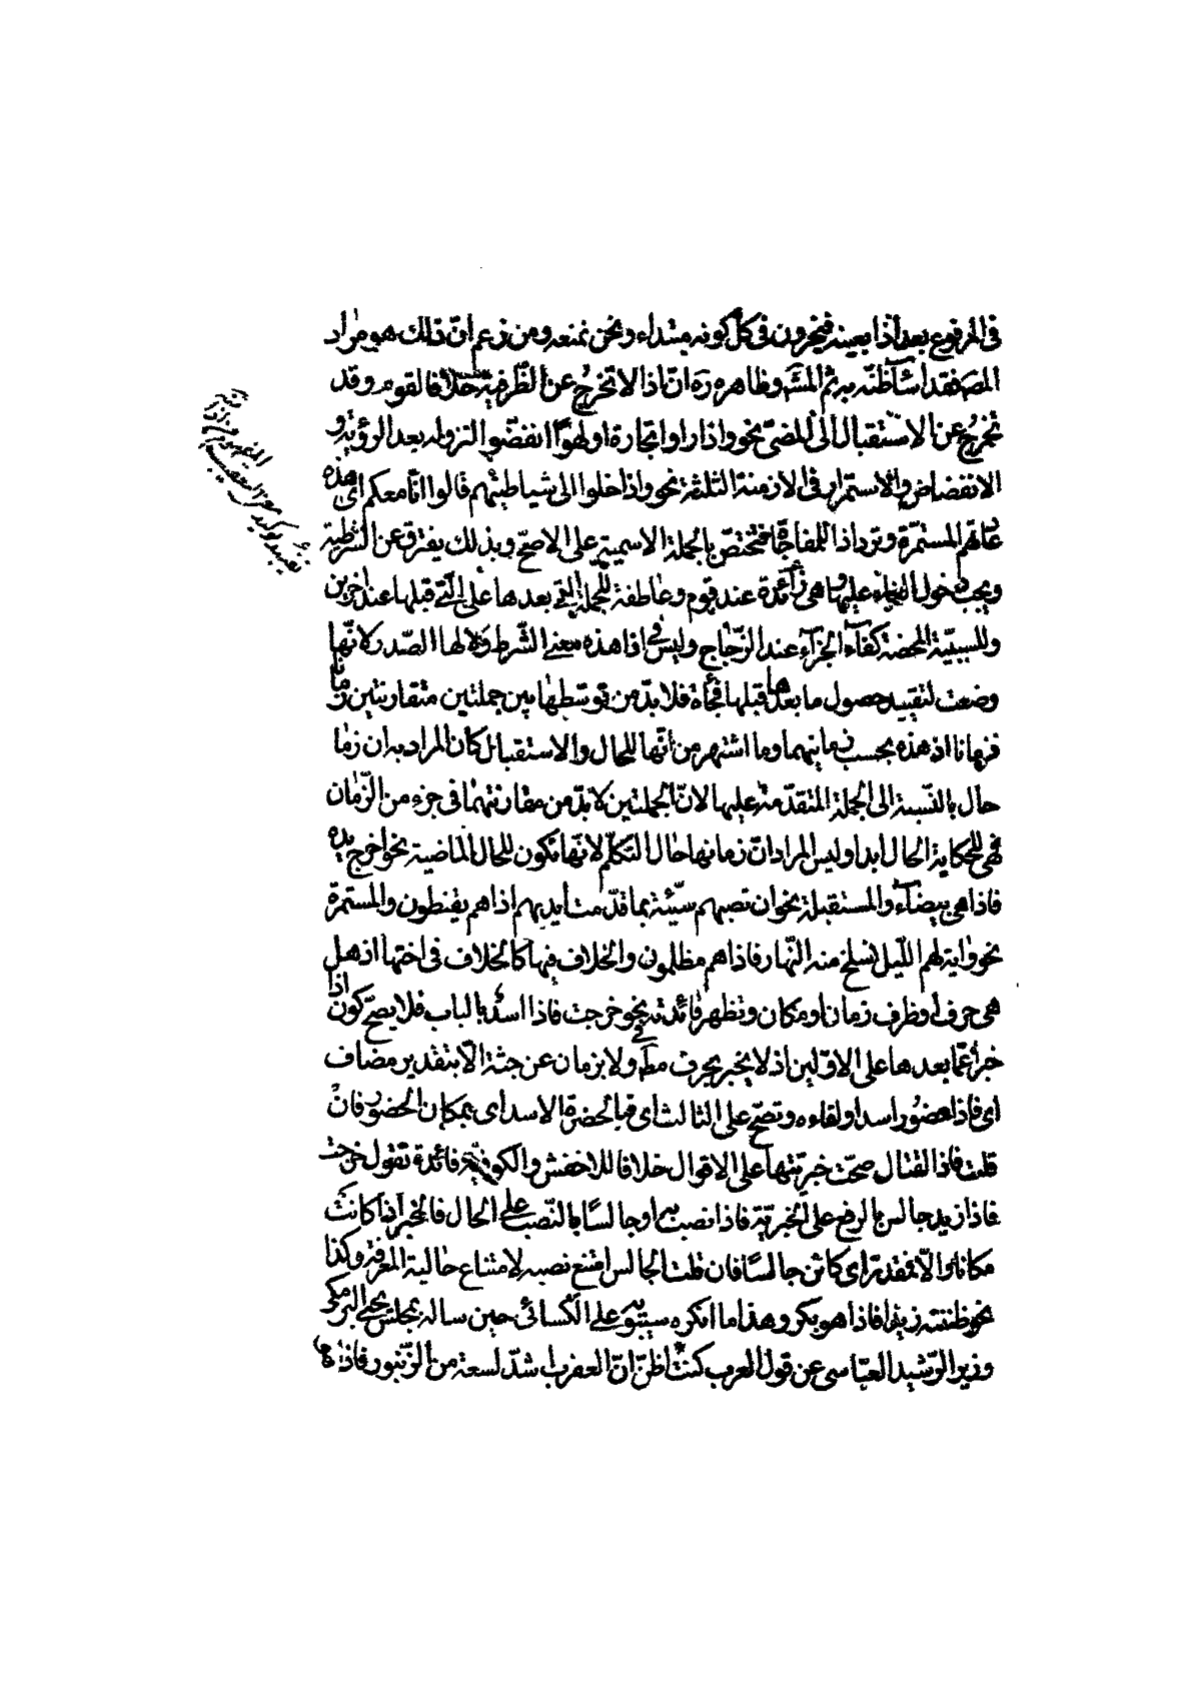 فى المرفوع بعد اذا بعينه فيخرون فى كل كونه مبتداء ونحن نمنعه ومن زعم انّ ذلك هو مراد
المصه فقد اساء ظنّه به ثم المش وظاهره ره انّ اذا لا تخرج عن الظّرفيّة خلافا لقوم وقد
تخرج عن الاستقبال الى المضىّ نحو واذا راوا تجارة او لهوًا انفضّوا لنزوله بعد الرؤية و
الانفضاض والاستمرار فى الازمنة الثلثة نحو واذا خلوا الى شياطينهم قالوا انّا معكم اى هذه
عادتهم المستمرّة وترد اذا للمفاجاة فتختصّ بالجملة الاسمية على الاصحّ وبذلك يفترق عن الشرطية
ويجب دخول الفاء عليها وهى زائدة عند قوم وعاطفة للجملة التى بعدها على التى قبلها عند اخرين
وللسببيّة المحضة كفاء الجزاء عند الزّجاج وليس فى اذا هذه معنى الشّرط ولا لها الصّدر لانّها
وضعت لتقييد حصول ما بعدها قبلها فجأة فلا بدّ من توسّطها بين جملتين متقارنتين زمانا
فزمانا اذ هذه بحسب زمانيهما وما اشتهر من انّها للحال والاستقبال كان المراد به ان زما
حال بالنّسبة الى الجملة المتقدّمة عليها لانّ الجملتين لا بدّ من مقارنتهما فى جزء من الزّمان
فهى للحكاية الحال ابدا وليس المراد انّ زمانها حال التكلّم لانّها تكون للحال الماضية نحو اخرج يده
فاذا هى بيضاء والمستقبلة نحو ان تصبهم سيّئة بما قدّمت ايديهم اذا هم يقنطون والمستمرة
نحو واية لهم اللّيل نسلخ منه النّهار فاذا هم مظلمون والخلاف فيها كالخلاف فى اختها اذ هل
هى حرف او ظرف زمان او مكان وتظهر فائدته فى نحو خرجت فاذا اسد بالباب فلا يصحّ كون اذا
خبرا عمّا بعدها على الاوّلين اذ لا يخبر بحرف مطر ولا بزمان عن جثة الّا بتقدير مضاف
اى فاذا حضور اسد او لقاءه وتصحّ على الثالث اى فبالحضرة الاسد اى بمكان الحضور فان
قلت فاذا القتال صحّت خبريّتها على الاقوال خلافا للاخفش والكوفية فائدة تقول خرجت
فاذا زيد جالس بالرفع على الخبريّة فاذا نصب به او جالسًا بالنّصب على الحال فالخبر اذا كانت
مكانا والّا فمقدّر اى كائن جالسًا فان قلت الجالس امتنع نصبه لامتناع حالية المعرفة وكذا
نحو ظننته زيدا فاذا هو بكر وهذا ما انكره سيبويه على الكسائى حين ساله بمجلس يحيى البرمكى
وزير الرّشيد العبّاسى عن قول العرب كنت اظنّ انّ العقرب اشدّ لسعة من الزّنبور فاذا ه